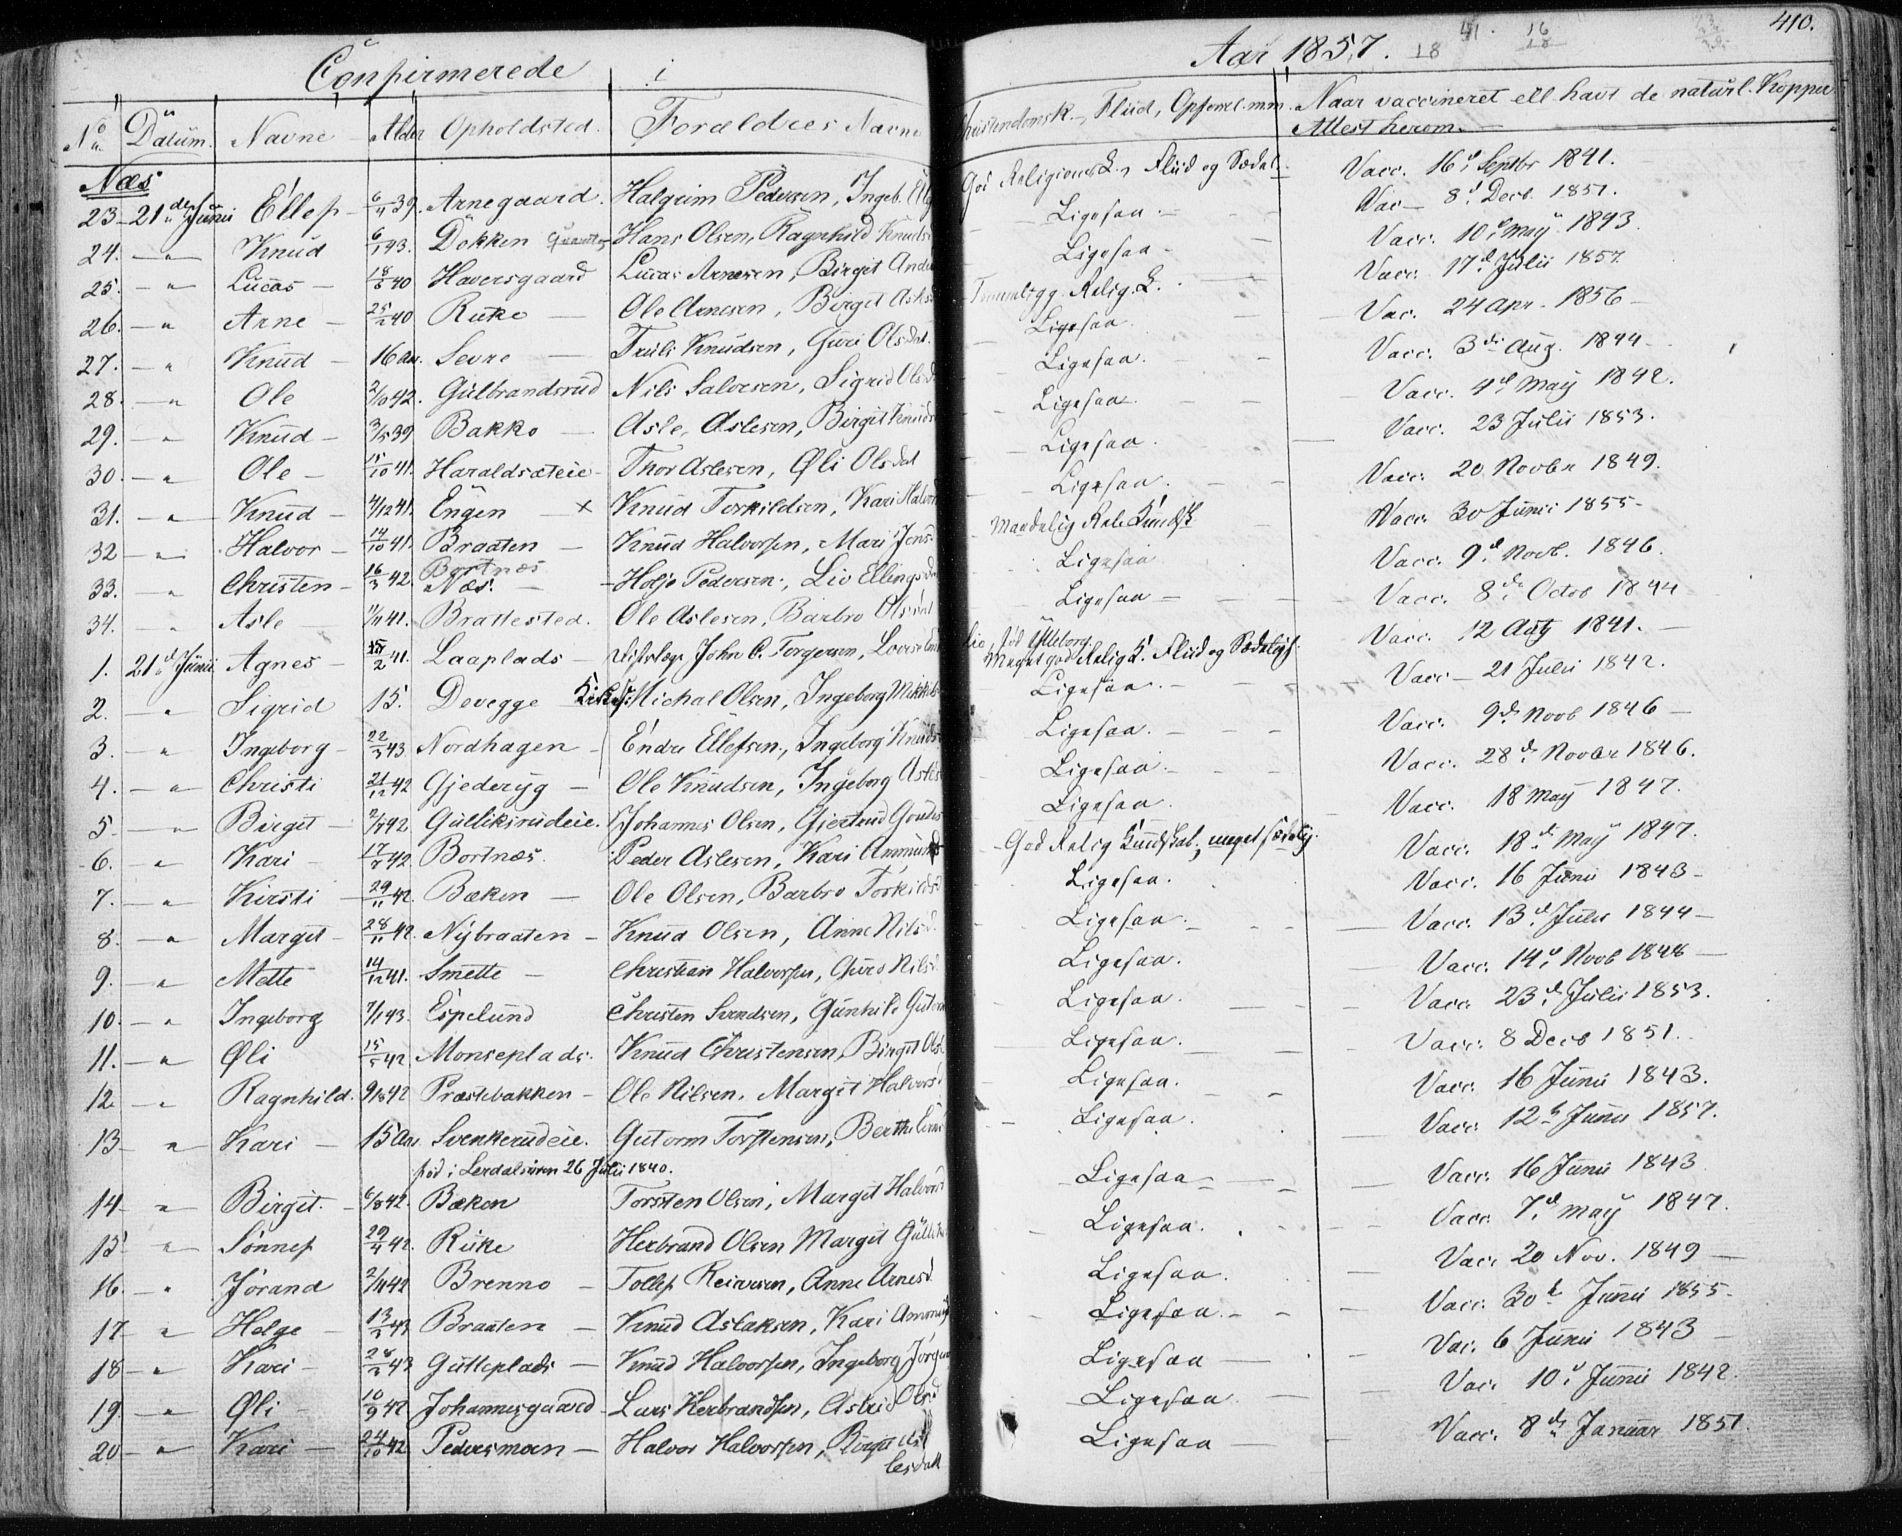 Confirmerede i
Aar 1857.
410.
No Datum. Navne Alder Opholdsted. Forældres Navne
Christendomsk., Flid, Opførsel m.m. Naar vaccineret ell. havt de naturl. Kopper
Attest herom.
Næs
23 21de Junii Ellef 6/4 39. Arnegaard. Halgrim Pedersen, Ingeb. God Religionsk., Flid og Sædel. Vacc. 16d Septbr 1841.
24. " Knud 6/1 43. Dokken Hans Olsen, Ragnhild Knudsd Ligesaa Vac 8d Decb. 1851.
25. " Lucas 18/5 40 Haversgaard Lucas Arnesen, Birgit Ligesaa Vacc. 10d May 1843.
26. " Arne 25/2 40 Ruke Ole Arnesen, Birgit Relig. K. Vacc. 17d Julii 1857.
27. " Knud 16 Aar. Sevre Truls Knudsen, Guri Olsdat. Ligesaa. Vac. 24 Apr. 1856
28. " Ole 2/10 42. Gulbrandsrud Nils Salvesen, Sigrid Olsd Ligesaa. Vacc. 3di Aug. 1844
29. " Knud 3/5 39 Bakko Asle Aslesen, Birgit Knuds Ligesaa. Vacc. 4d May 1842.
30. " Ole 15/10 41. Haraldsæteie Thor Aslesen, Øli Olsdat Ligesaa. Vacc. 23 Julii 1853.
31. " Knud 4/12 41. Engen x Knud Torkildsen, Kari Halvors Ligesaa. Vacc. 20 Novbr 1849.
32 " Halvor 14/10 41. Braaten Knud Halvorsen, Mari Jens Maadelig Rel. Kundsk Vacc. 30 Junii 1855
33. " Christen 16/3 42. Bortnæs Næs. Holje Pedersen, Liv Ellingsd Ligesaa Vacc. 9d Novb. 1846.
34. " Asle 11/11 41. Brattested. Ole Aslesen, Barbro Olsdat Ligesaa Vacc. 8de Octob 1844
1. 21d Junii Agnes 2 41. Laaplads John C. Torgersen, Meget god Relig K. Flid og Sædeligh. Vacc. 12 Aug 1841.
2. " Sigrid 15. Devegge Michal Olsen, Ingeborg Mikkels Ligesaa. Vacc 21 Julii 1842.
3. " Ingeborg 22/3 43 Nordhagen Endre Ellefsen, Ingeborg Knuds Ligesaa. Vacc. 9d Novb 1846
4. " Christi 21/12 42 Gjederyg Ole Knudsen, Ingeborg Asles Ligesaa. Vacc. 28d Novbr 1846.
5 " Birgit 2/9 42 Gulliksrudeie. Johannes Olsen, Gjertrud Ligesaa. Vacc. 18 May 1847.
6. " Kari 17/5 42. Bortnæs. Peder Aslesen, Kari Ammunds God Relig Kundskab, meget sædelig. Vacc. 18d May 1847.
7. " Kirsti 29/11 42. Bæken Ole Olsen, Barbro Torkildsd Ligesaa. Vacc. 16 Junii 1843
8. " Margit 28/11 42. Nybraaten Knud Olsen, Anne Nilsd. Ligesaa. Vacc. 13d Julii 1844
9. " Mette 14/12 41. Smette Christian Halvorsen, Guro Nilsd Ligesaa. Vacc. 14d Novb 1848
10. " Ingeborg 7/1 43. Espelund Christen Svendsen, Gunhild Gutorm Ligesaa. Vacc. 23d Julii 1853.
11. " Øli 15/5 42 Monseplads. Knud Christensen, Birgit Ols Ligesaa. Vacc. 8 Decb 1851.
12 " Ragnhild. 9/10 42 Præstebakken Ole Nilsen, Margit Halvorsd Ligesaa. Vacc. 16 Junii 1843.
13 " Kari 15 Aar Svenkerudeie. Gutorm Torstensen, Berthe Ligesaa. Vacc. 12 Junii 1857.
fød i Lerdalsøren 26 Julii 1840.
14 " Birgit. 6/8 42. Bæken Torsten Olsen, Margit Halvors Ligesaa Vacc. 16 Junii 1843
15 " Sønnef 29/4 42. Ruke Herbrand Olsen Margit Ligesaa. Vacc. 7d May 1847.
16. " Jørand 2/11 42 Brenno Tollef Reiersen, Anne Arnesd. Ligesaa. Vacc 20 Nov. 1849
17 " Helge 13/3 43 Braaten Knud Aslaksen, Kari Ligesaa. Vacc. 30d Junii 1855
18 " Kari 28/2 43 Gutteplads Knud Halvorsen, Ingeborg Ligesaa Vac. 6 Junii 1843
19 " Øli 10/9 42 Johannesgaard Lars Herbrandsen, Astrid Olsd Ligesaa Vac. 10d Junii 1842.
20 " Kari 24/10 42. Pedersmoen Halvor Halvorsen, Birgit Ligesaa Vacc. 8d Januar 1851.